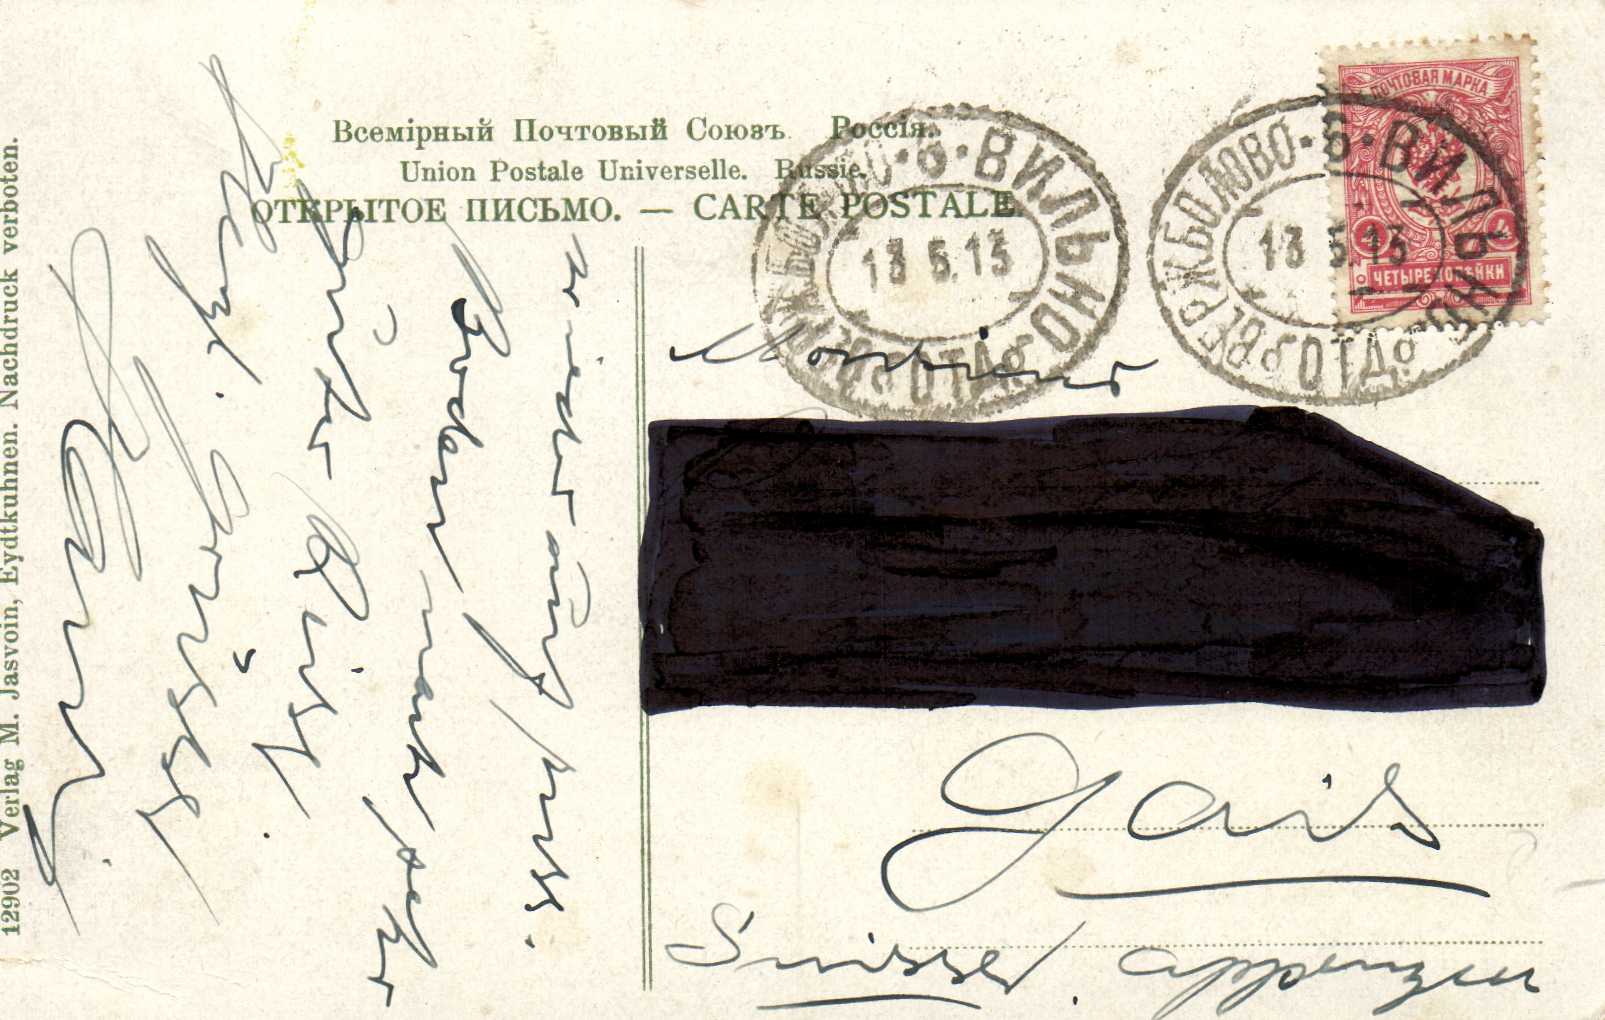 Всемірный Почтовый Союзъ. Россія.
Union Postale Universelle. Russie.
ОТКРЫТОЕ ПИСЬМО. — CARTE POSTALE.
ПОЧТОВАЯ МАРКА
4 4
ЧЕТЫРЕ КОПЕЙКИ
ВЕРЖБОЛОВО · Б · ВИЛЬНО
13 5.13
ОТД
ВЕРЖБОЛОВО · Б · ВИЛЬНО
13 5.13
ОТД
Monsieur
Gais
Suisse. Appenzell
wieder auf russ.
Boden
Herzl. Grüsse
12902 Verlag M. Jasvoin, Eydtkuhnen. Nachdruck verboten.